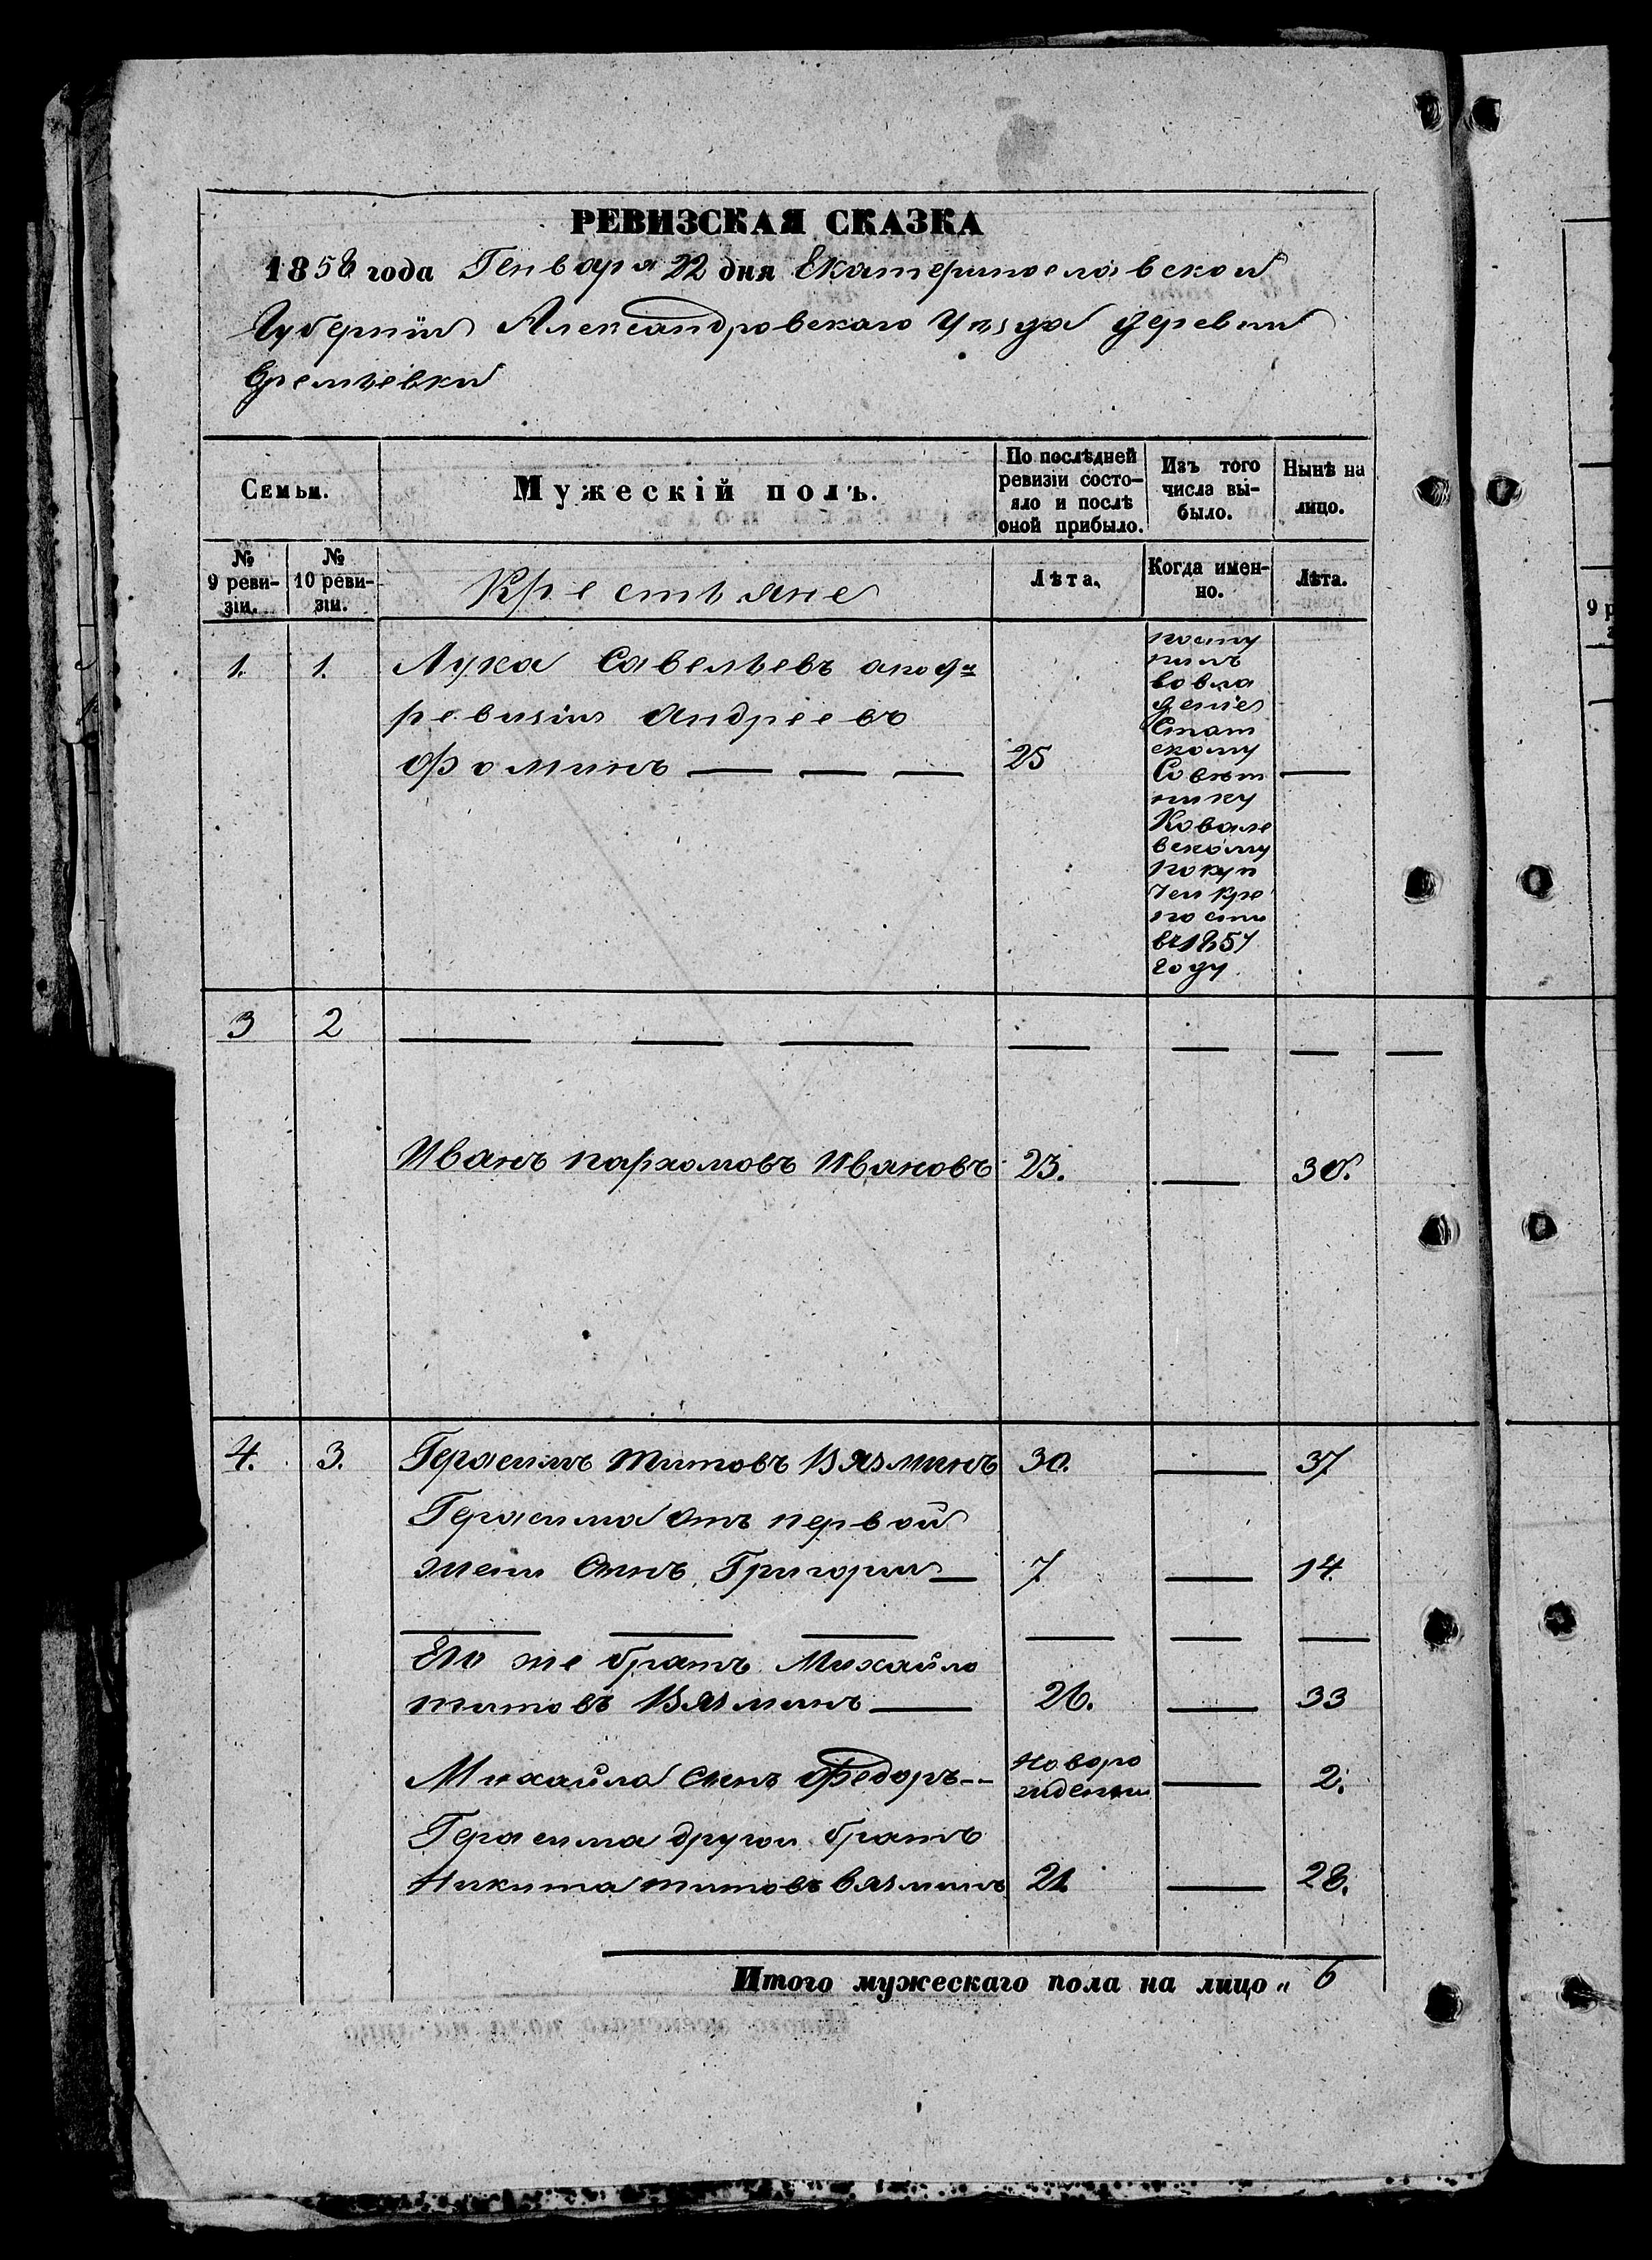 РЕВИЗСКАЯ СКАЗКА
1858 года Генваря 22 дня Екатеринославской
Губернии Александровскаго Уезда деревни
Времьевки
Семьи.
Мужескій полъ.
По послѣдней
ревизіи состо-
яло и послѣ
оной прибыло.
Изъ того
числа вы-
было.
Нынѣ на
лицо.
№
9 реви-
зіи.
№
10 реви-
зіи.
Крестьяне
Лѣта.
Когда имен-
но.
Лѣта.
1. 1. Лука Савельевъ апо 9й
ревизіи Андреевъ
Фоминъ 25
посту
пилъ
во вла
деніе
Стат
скому
Совѣт
нику
Ковале
вскому
по куп
чей кре
пости
въ 1857
году
3 2
Иванъ пархомовъ Ивановъ 23. 30.
4. 3. Герасимъ титовъ Вязминъ 30. 37
Герасима отъ первой
жены Сынъ Григорий 7 14
Его же братъ Михайло
титовъ Вязминъ 26. 33
Михайла Сынъ Федоръ Новоро
жденный 2.
Герасима другой братъ
Никита титовъ вязминъ 21. 28.
Итого мужескаго пола на лицо „ 6